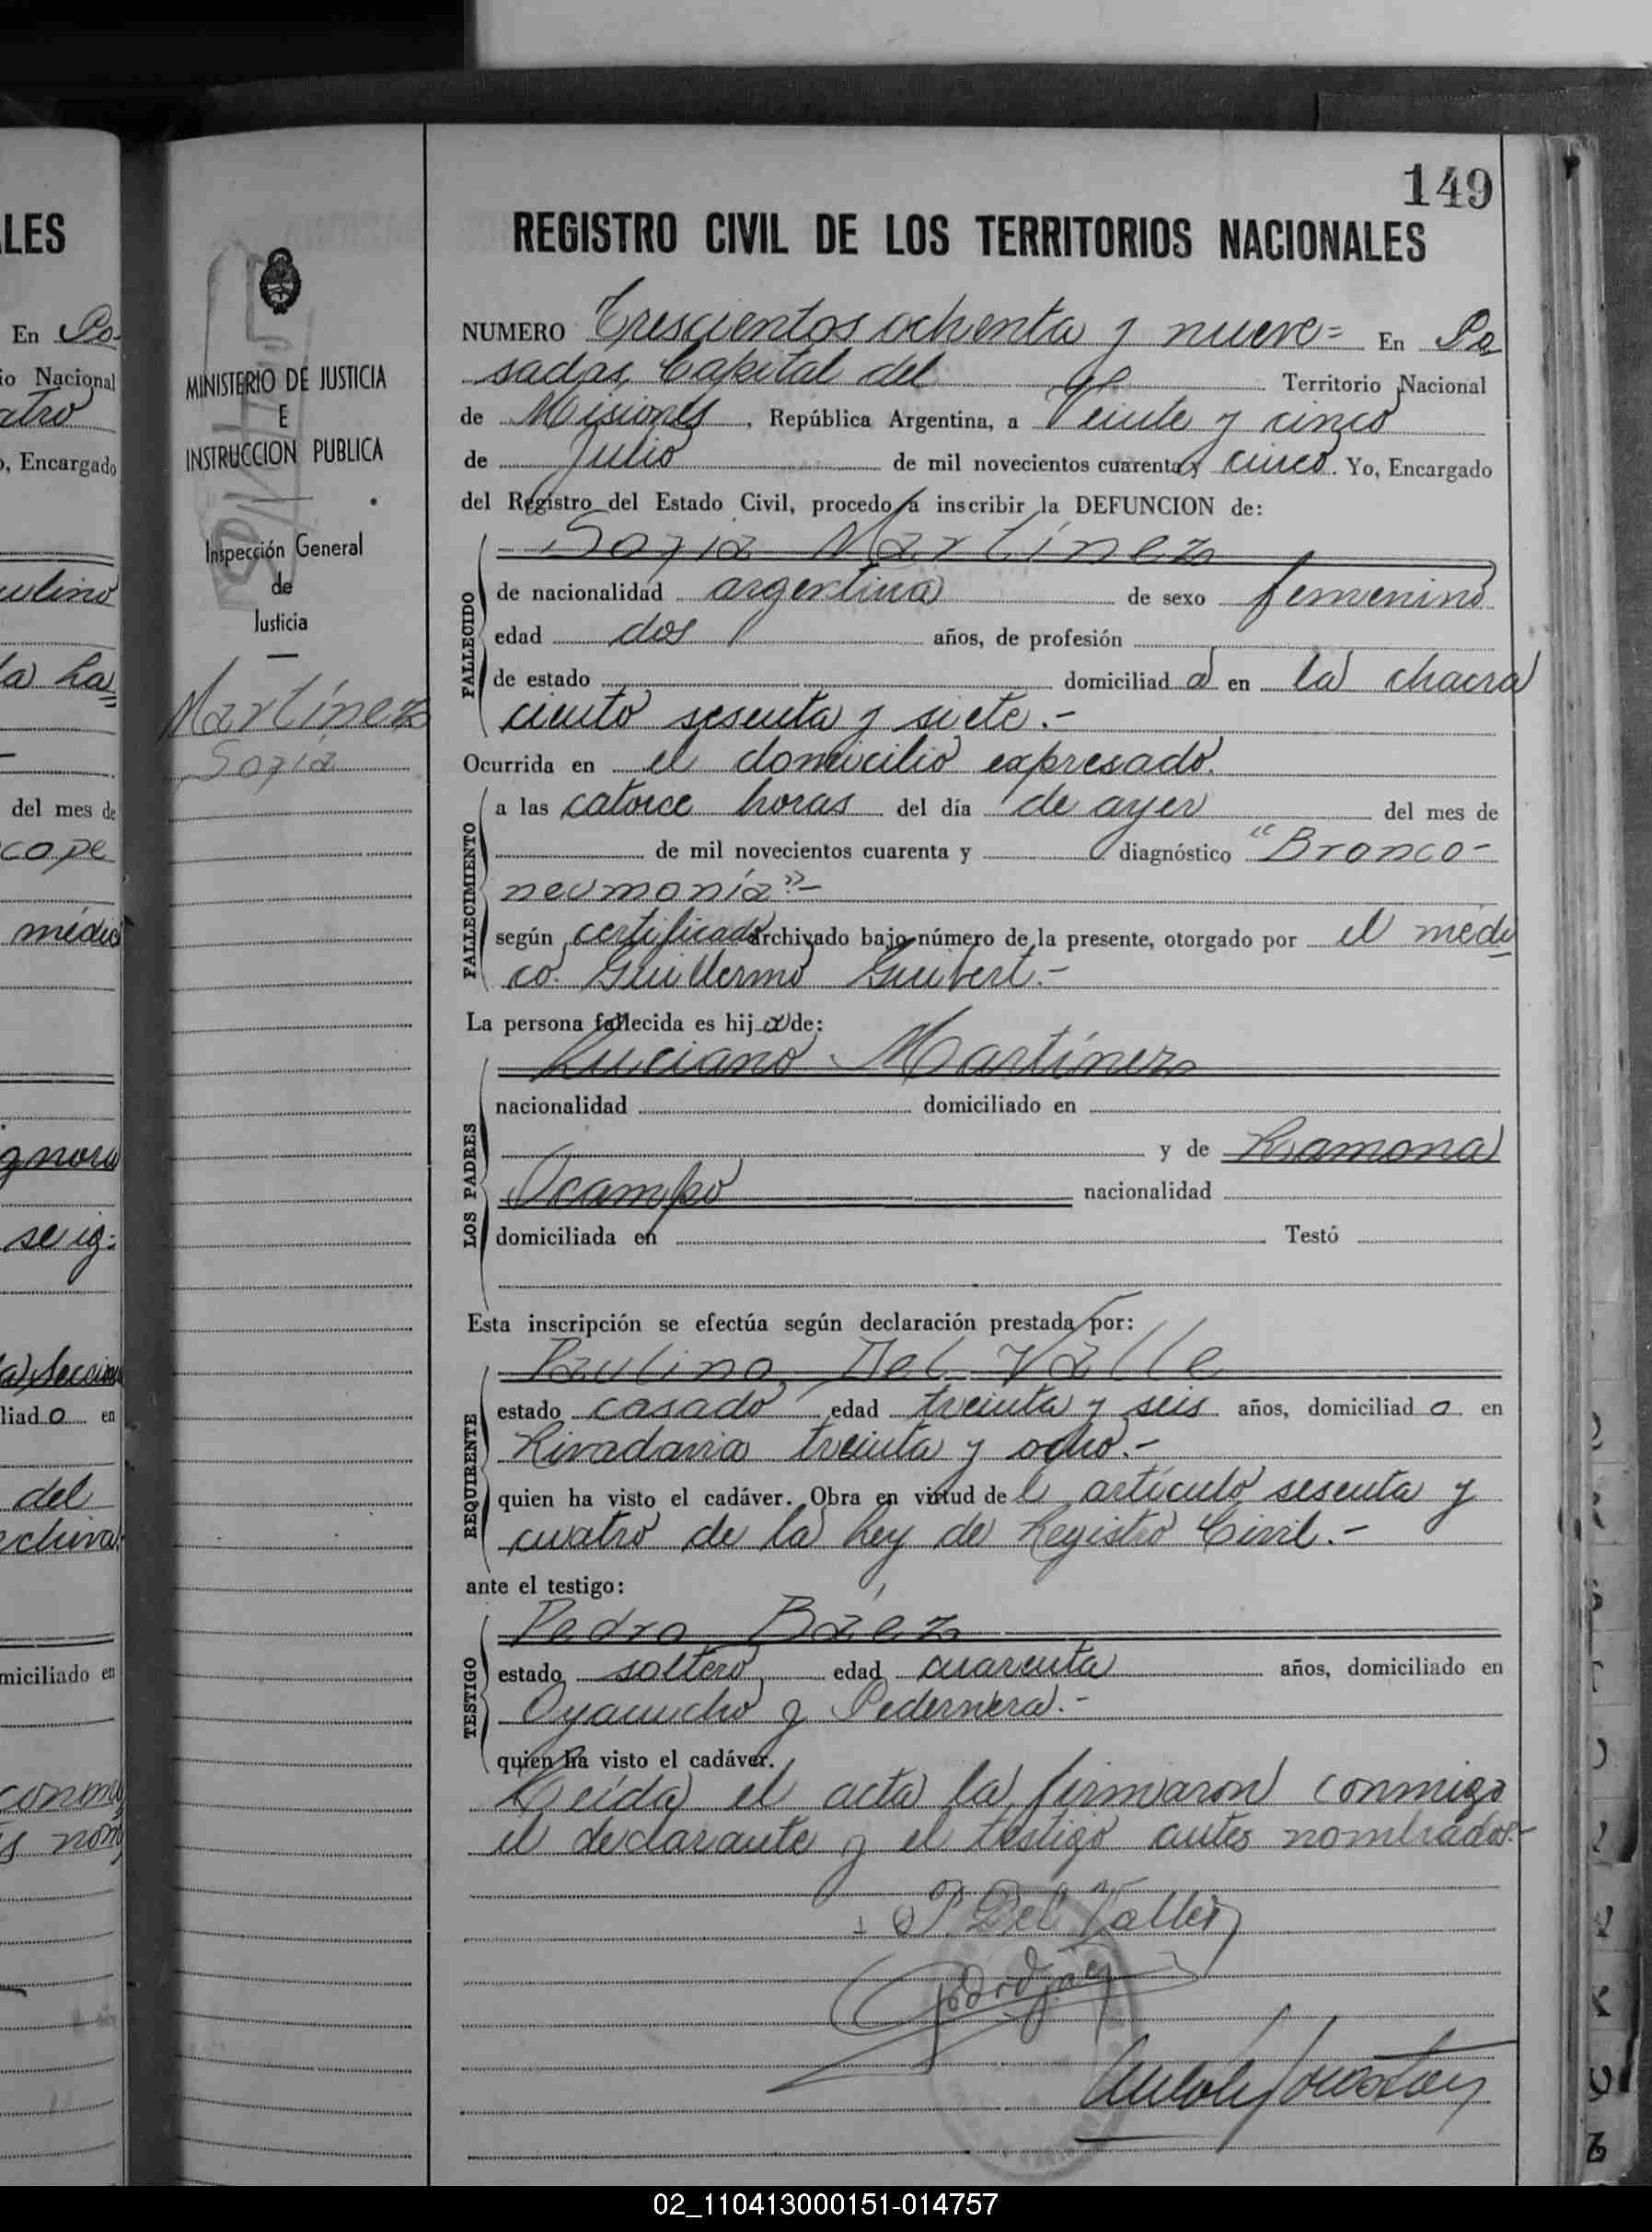 LES
En Po-
io Nacional
atro
o, Encargado
ulino
la ha
del mes de
cope
médic
gnora
se ig-
a Seccion
liado en
del
rchiva
miciliado en
conmi
s nom
MINISTERIO DE JUSTICIA
E
INSTRUCCION PUBLICA
Inspección General
de
Justicia
Martínez
Sofía
149
REGISTRO CIVIL DE LOS TERRITORIOS NACIONALES
NUMERO Trescientos ochenta y nueve= En Po
sadas, Capital del Territorio Nacional
de Misiones, República Argentina, a Veinte y cinco
de Julio de mil novecientos cuarenta y cinco. Yo, Encargado
del Registro del Estado Civil, procedo a inscribir la DEFUNCION de:
Sofía Martínez
FALLECIDO
de nacionalidad argentina de sexo femenino
edad dos años, de profesión
de estado domiciliada en la chacra
ciento sesenta y siete.-
Ocurrida en el domicilio expresado.
FALLECIMIENTO
a las catorce horas del día de ayer del mes de
de mil novecientos cuarenta y diagnóstico "Bronco-
neumonía"-
según certificado archivado bajo número de la presente, otorgado por el médi
co. Guillermo Guibert.-
La persona fallecida es hija de:
LOS PADRES
Luciano Martínez
nacionalidad domiciliado en
y de Ramona
Ocampo nacionalidad
domiciliada en Testó
Esta inscripción se efectúa según declaración prestada por:
REQUIRENTE
Paulino Del Valle
estado casado edad treinta y seis años, domiciliado en
Rivadavia treinta y ocho.-
quien ha visto el cadáver. Obra en virtud del artículo sesenta y
cuatro de la Ley de Registro Civil.-
ante el testigo:
TESTIGO
Pedro Báez
estado soltero edad cuarenta años, domiciliado en
Ayacucho y Pedernera.-
quien ha visto el cadáver.
Leída el acta la firmaron conmigo
el declarante y el testigo antes nombrados.-
P. Del Valle
02_110413000151-014757